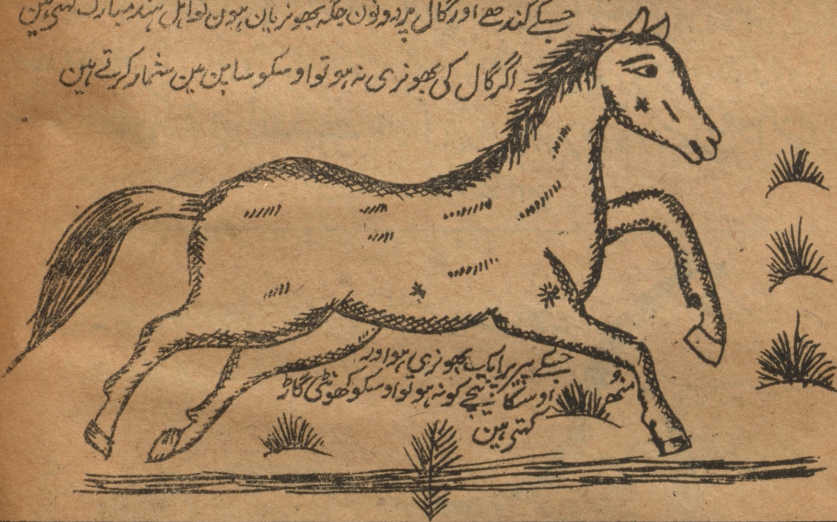 جسکے کندھے اور گال پر دونون جگہ بھونریان ہون تو اہل ہند مبارک کہتی ہین
اگر گال کی بھونری نہ ہو تو اوسکو ساپن مین شمار کرتے ہین
جسکے سر پر ایک بھونری ہو اور
منھ اوسکا نیچے کو نہ ہو تو اوسکو کھونٹی گاڑ
کہتی ہین